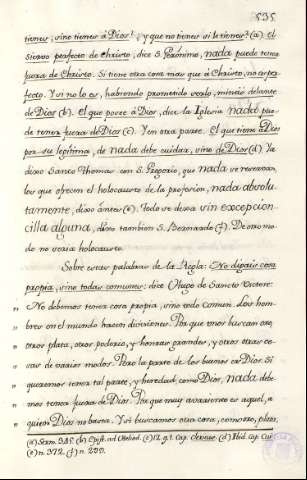 535
tienes, sino tienes à Dios? y que no tienes si le tienes? (a). El
siervo perfecto de Christo, dice S. Gerónimo, nada puede tener
fuera de Christo. Si tiene otra cosa mas que à Christo, no es per-
fecto. Y si no lo es, habiendo prometido serlo, mintió delante
de Dios (b). El que posee à Dios, dice la Iglesia nada pue-
de tener fuera de Dios (c). Y en otra parte. El que tiene à Dios
por su legitima, de nada debe cuidar, sino de Dios (d). Ya
dixo Santo Thomas con S. Gregorio, que nada se reservan,
los que ofrecen el holocausto de la profesion, nada absolu-
tamente, dixo ántes (e). Todo se dexa sin excepcion-
cilla alguna, dixo tambien S. Bernardo (f). De otro mo-
do no sería holocausto.
Sobre estas palabras de la Regla: No digais cosa
propia, sino todas comunes: dice Hugo de Sancto Victore:
" No debemos tener cosa propia, sino todo comun. Los hom-
" bres en el mundo hacen divisiones. Por que unos buscan oro,
" otros plata, otros poderío, y honras grandes, y otros otras co-
" sas de varios modos. Pero la parte de los buenos es Dios. Si
" queremos tener tal parte, y heredad, como Dios, nada debe-
" mos tener fuera de Dios. Por que muy avariento es aquel, a
" quien Dios no basta. Y si buscamos otra cosa, como oro, plata,
(a) Serm. 345. (b) Epist. ad Heliod. (c) 12. q. 1. Cap. Clericus. (d) Ibid. cap. Cui
(e) n. 372. (f) n. 299.